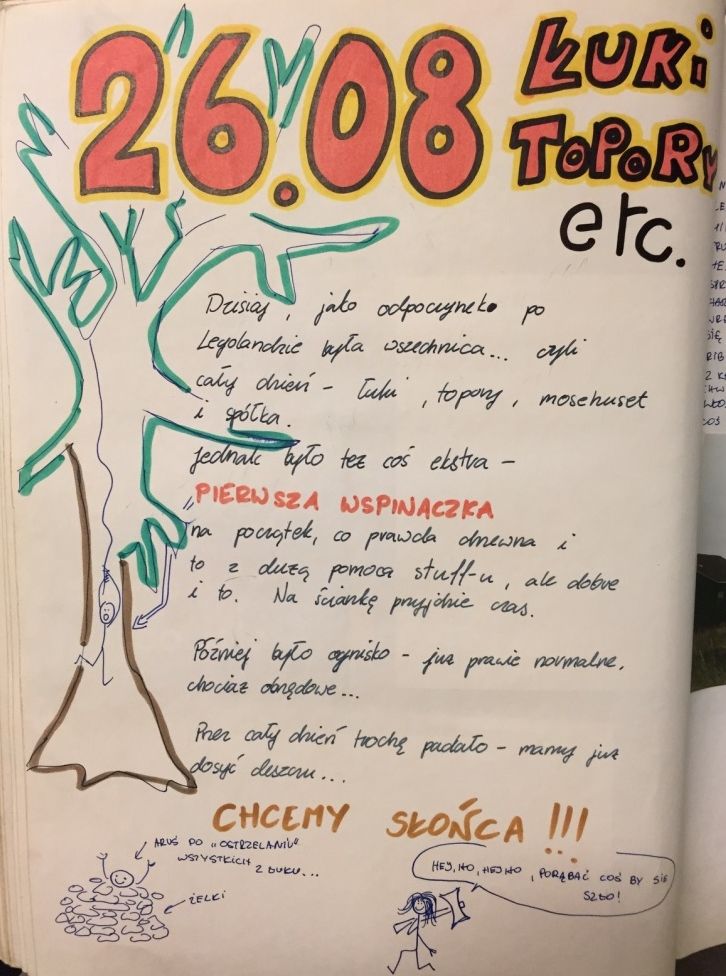 26.08
ŁUKI
TOPORY
etc.
Dzisiaj, jako odpoczynek po
Legolandzie była wszechnica... czyli
cały dzień - łuki, topory, mosehuset
i spółka.
Jednak było też coś ekstra -
PIERWSZA WSPINACZKA
na początek, co prawda drzewna i
to z dużą pomocą stuff-u, ale dobre
i to. Na ściankę przyjdzie czas.
Później było ognisko - już prawie normalne,
chociaż obrzędowe...
Przez cały dzień trochę padało - mamy już
dosyć deszczu...
CHCEMY SŁOŃCA!!!
ARUŚ PO "OSTRZELANIU"
WSZYSTKICH
Z ŁUKU...
ŻELKI
HEJ, HO, HEJ HO, PORĄBAĆ COŚ BY SIĘ
SZŁO!